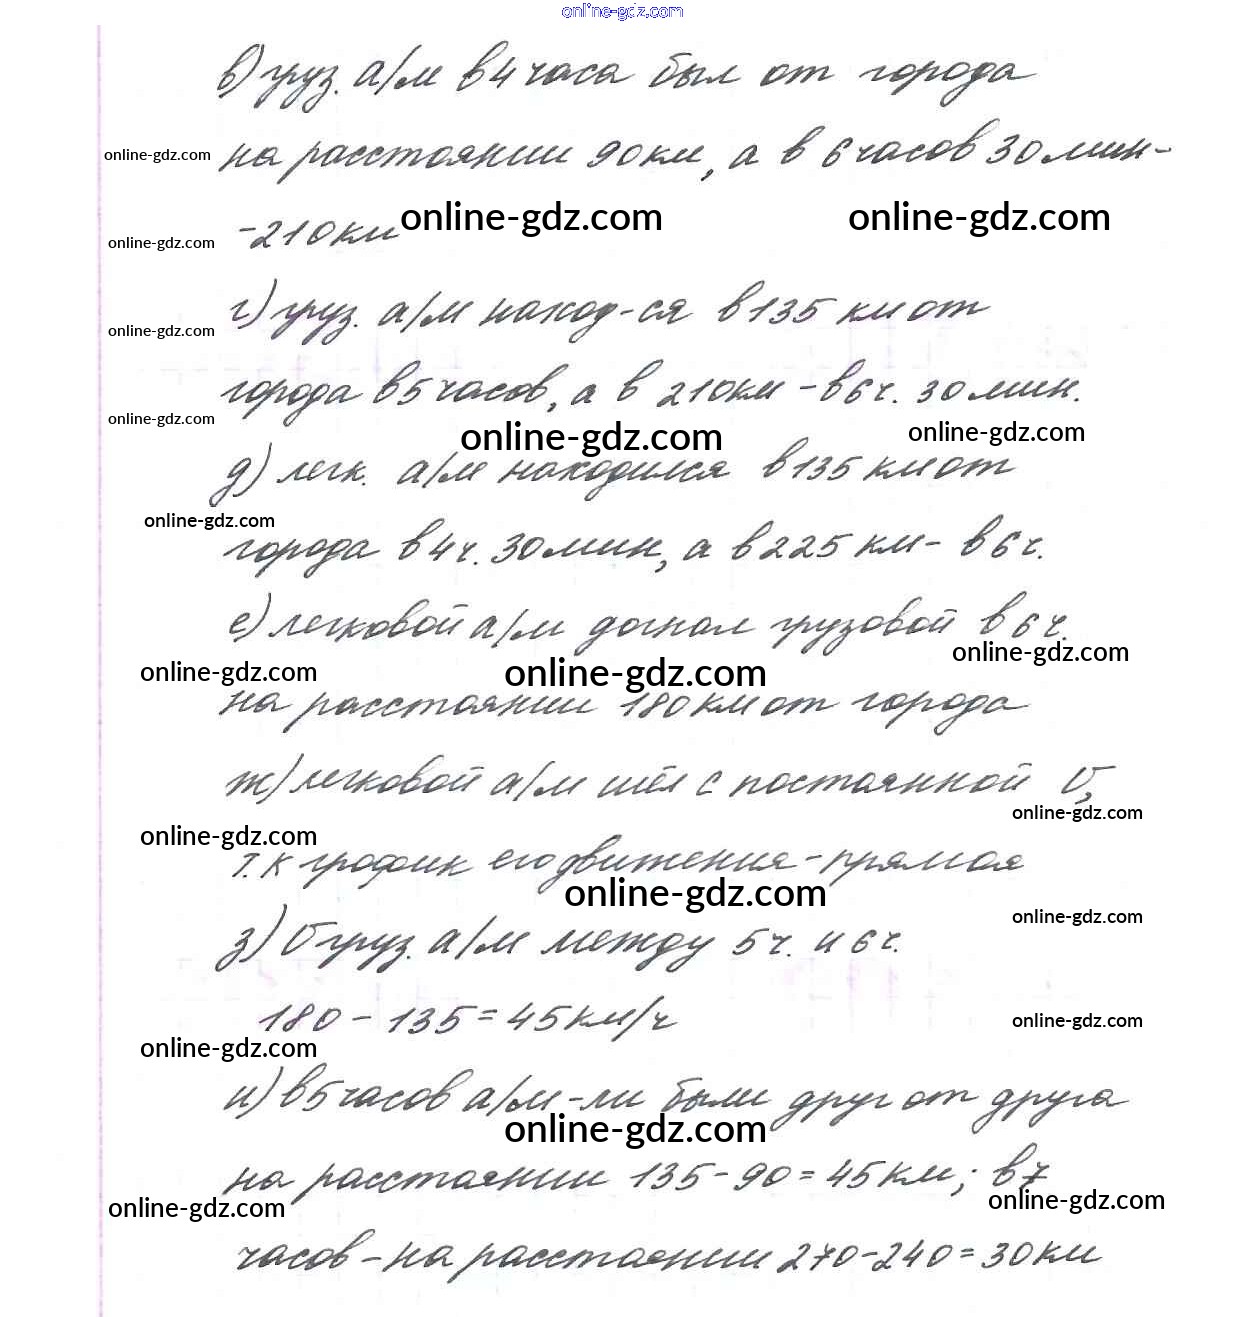 online-gdz.com
в) груз. а/м в 4 часа был от города
online-gdz.com
на расстоянии 90 км, а в 6 часов 30 мин-
online-gdz.com online-gdz.com
online-gdz.com
-210 км
г) груз. а/м наход-ся в 135 км от
online-gdz.com
города в 5 часов, а в 210 км - в 6 ч. 30 мин.
online-gdz.com
online-gdz.com online-gdz.com
д) легк. а/м находился в 135 км от
online-gdz.com
города в 4 ч. 30 мин, а в 225 км - в 6 ч.
е) легковой а/м догнал грузовой в 6 ч.
online-gdz.com
online-gdz.com online-gdz.com
на расстоянии 180 км от города
ж) легковой а/м шёл с постоянной V,
online-gdz.com
online-gdz.com
т.к график его движения - прямая
online-gdz.com
online-gdz.com
з) V груз. а/м между 5 ч. и 6 ч.
180 - 135 = 45 км/ч
online-gdz.com
online-gdz.com
и) в 5 часов а/м-ли были друг от друга
online-gdz.com
на расстоянии 135 - 90 = 45 км; в 7
online-gdz.com online-gdz.com
часов - на расстоянии 270 - 240 = 30 км